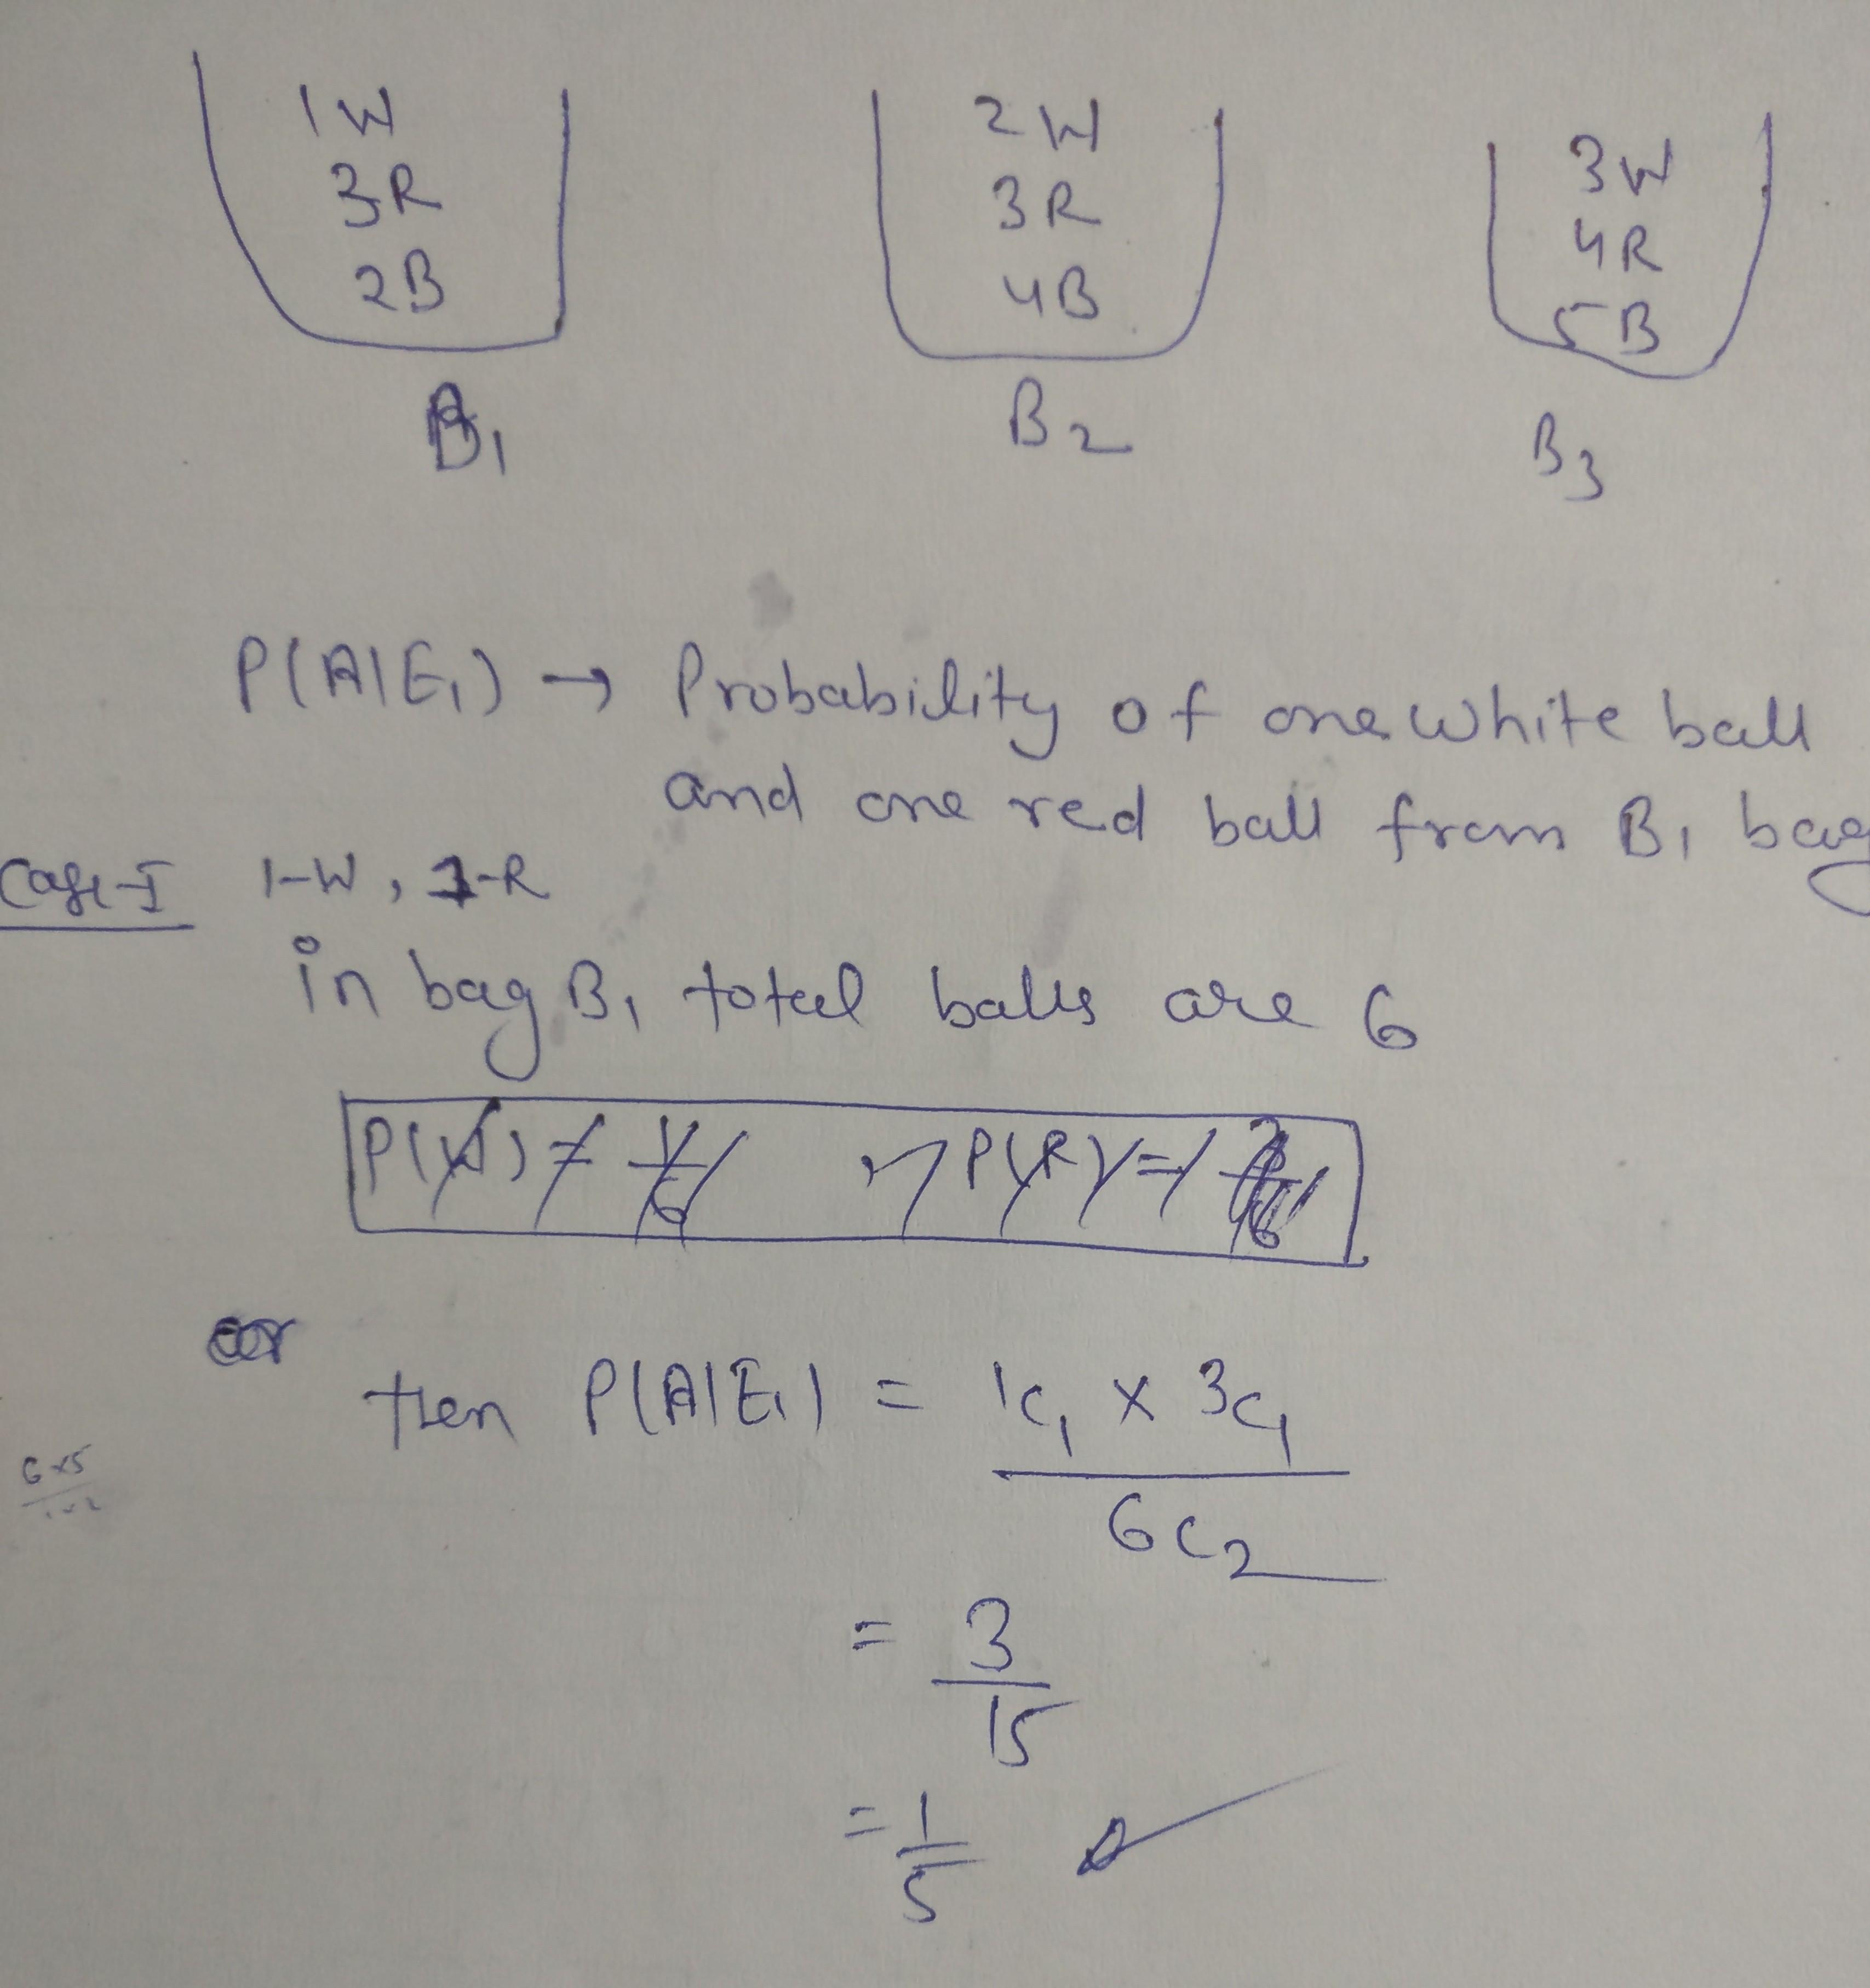 1W
3R
2B
B1
2W
3R
4B
B2
3W
4R
5B
B3
P(A|E1) → Probability of one white ball
and one red ball from B1 bag
Case-I 1-W, 1-R
in bag B1 total balls are 6
P(W) = 1/6 , P(R) =
or
then P(A|E1) = 1c1 × 3c1
6c2
6×5
1×2
= 3
15
= 1
5